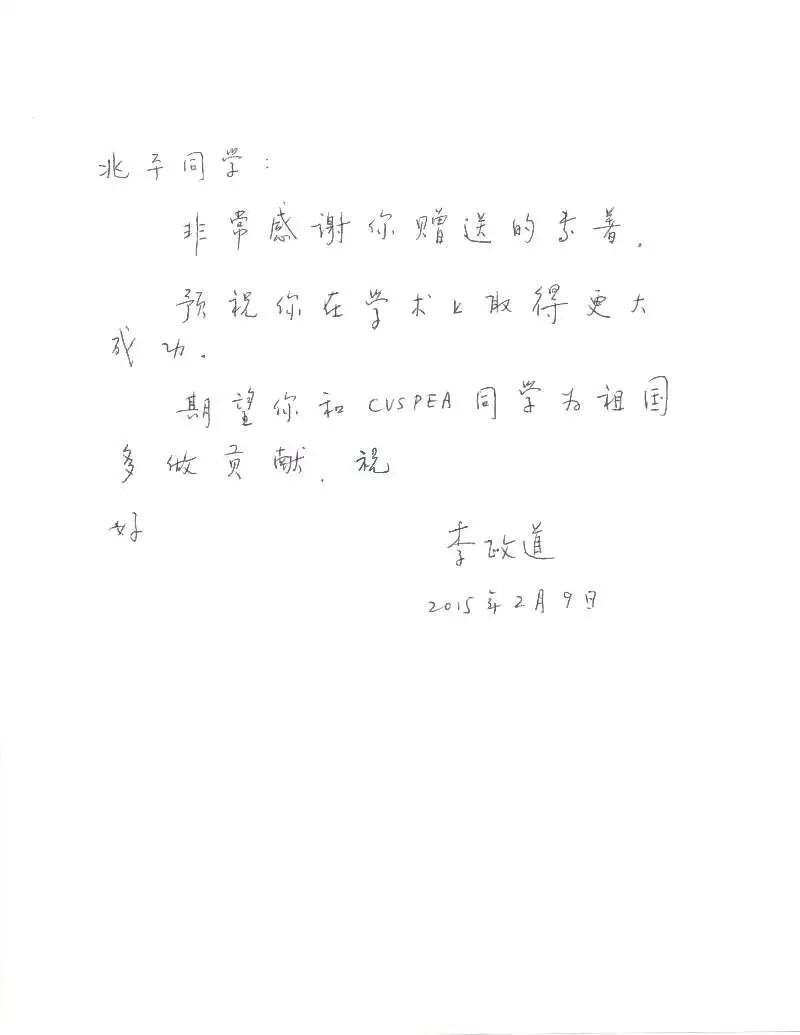 兆平同学：
非常感谢你赠送的专著.
预祝你在学术上取得更大
成功.
期望你和CUSPEA同学为祖国
多做贡献. 祝
好
李政道
2015年2月9日